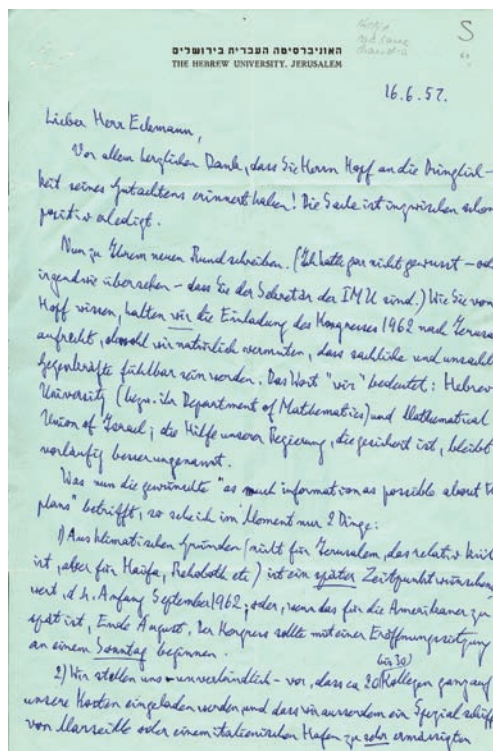 S
האוניברסיטה העברית בירושלים
THE HEBREW UNIVERSITY, JERUSALEM
16.6.57.
Lieber Herr Eckmann,
Vor allem herzlichen Dank, dass Sie Herrn Hopf an die Dringlich-
keit seines Gutachtens erinnert haben! Die Sache ist inzwischen schon
positiv erledigt.
Nun zu Ihrem neuen Rundschreiben. (Ich hatte gar nicht gewusst – od
irgendwie übersehen – dass Sie der Sekretär der IMU sind.) Wie Sie von
Hopf wissen, halten wir die Einladung des Kongresses 1962 nach Jerusa
aufrecht, obwohl wir natürlich vermuten, dass sachliche und unsachl
Gegenkräfte fühlbar sein werden. Das Wort "wir" bedeutet: Hebrew
University (bezw. ihr Department of Mathematics) und Mathematical
Union of Israel; die Hilfe unserer Regierung, die gesichert ist, bleibt
vorläufig besser ungenannt.
Was nun die gewünschte "as much information as possible about t
plans" betrifft, so sehe ich im Moment nur 2 Dinge:
1) Aus klimatischen Gründen (nicht für Jerusalem, das relativ kühl
ist, aber für Haifa, Rehoboth etc) ist ein später Zeitpunkt wünschen
wert, d.h. Anfang September 1962; oder, wenn das für die Amerikaner zu
spät ist, Ende August. Der Kongress sollte mit einer Eröffnungssitzung
an einem Sonntag beginnen.
2) Wir stellen uns – unverbindlich – vor, dass ca 20 (bis 30) Kollegen ganz auf
unsere Kosten eingeladen werden und dass wir ausserdem ein Spezialschiff
von Marseille oder einem italienischen Hafen zu sehr ermässigten